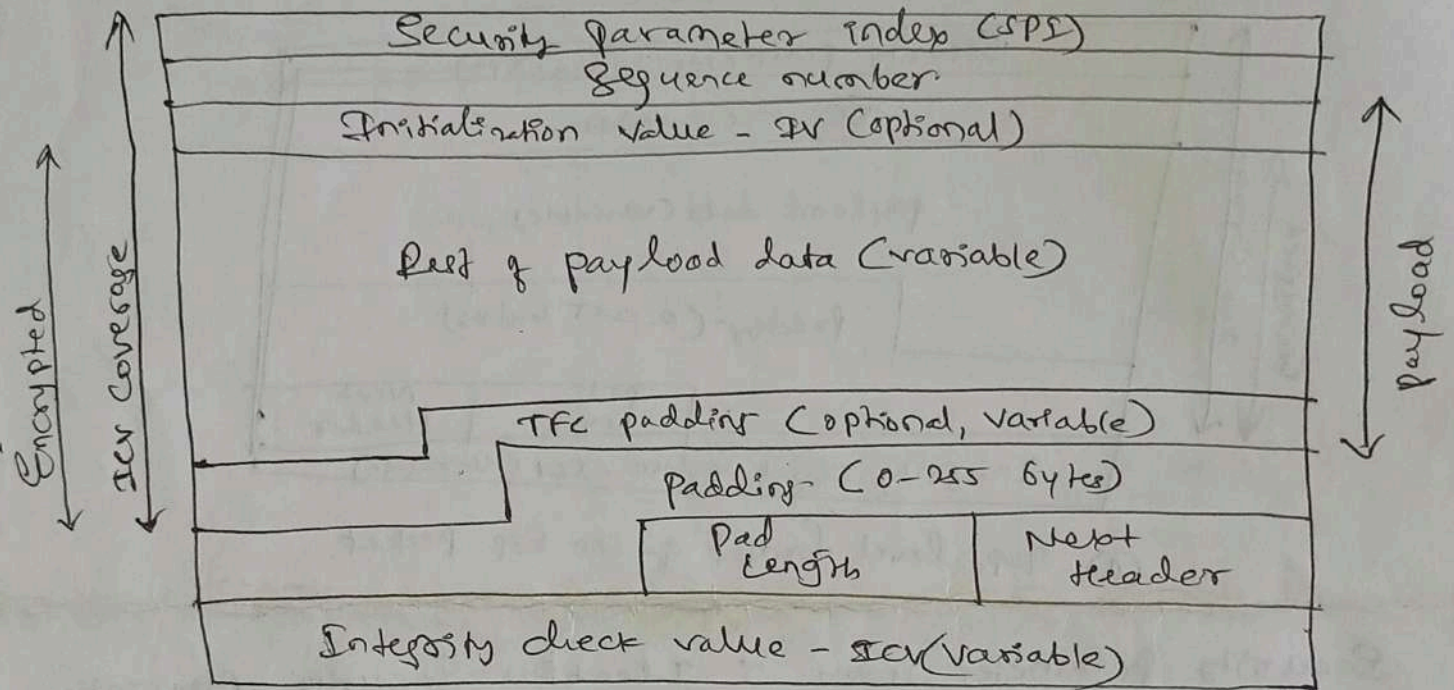 Security parameter index (SPI)
Sequence number
Initialization value - IV (optional)
Rest of payload data (variable)
TFC padding (optional, variable)
padding (0-255 bytes)
Pad Length
Next Header
Integrity check value - ICV (variable)
Encrypted
ICV coverage
payload